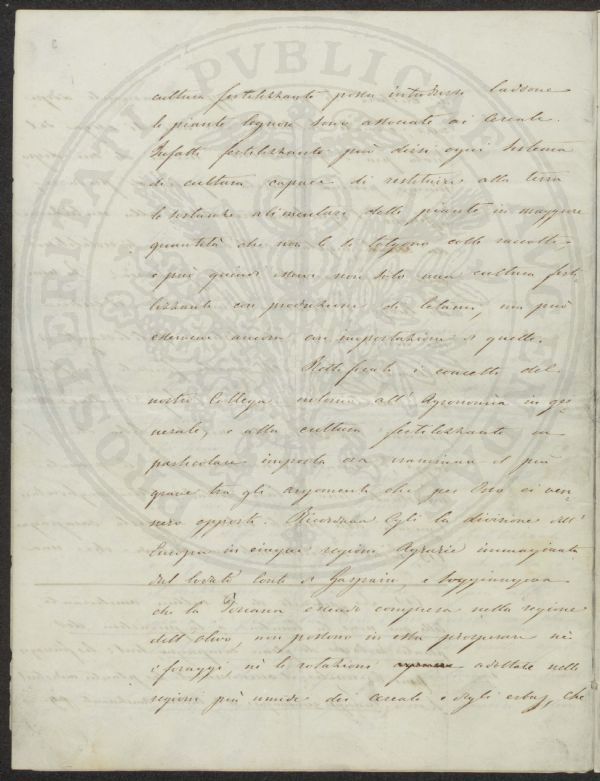 cultura fertilizzante possa introdursi laddove
le piante legnose sono associate ai cereali.
Infatti fertilizzante può dirsi ogni sistema
di cultura capace di restituire alla terra
le sostanze alimentari delle piante in maggiore
quantità che non le si tolgono colle raccolte
e può quindi esservi non solo una cultura ferti-
lizzante con produzione di letami, ma può
esservene ancora con importazione di quello.
Rettificati i concetti del
nostro Collega intorno all'Agronomia in ge-
nerale, e alla cultura fertilizzante in
particolare importa ora esaminare il più
grave tra gli argomenti che per Esso ci ven-
nero opposti. Ricordava Egli la divisione dell'
Europa in cinque regioni Agrarie immaginata
dal lodato Conte di Gasparin, e soggiungeva
che la Toscana essendo compresa nella regione
dell'Olivo, non possono in essa prosperare nè
i foraggi nè le rotazioni adottate nelle
regioni più umide dei cereali e degli erbaggi, che
PROSPERITATI PVBLICAE AVGENDAE